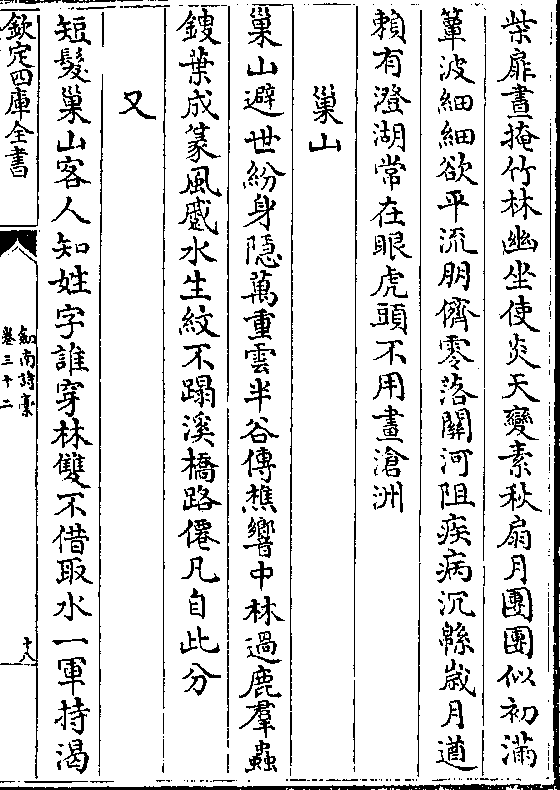 柴扉晝掩竹林幽坐使炎天變素秋扇月團團似初滿
簟波細細欲平流朋儕零落關河阻疾病沉緜歳月遒
賴有澄湖常在眼虎頭不用畫滄洲
巢山
巢山避世紛身隱萬重雲半谷傳樵響中林過鹿羣蟲
鏤葉成篆風蹙水生紋不蹋溪橋路僊凡自此分
又
短髮巢山客人知姓字誰穿林雙不借取水一軍持渴
欽定四庫全書
劍南詩稾
卷三十二
十八